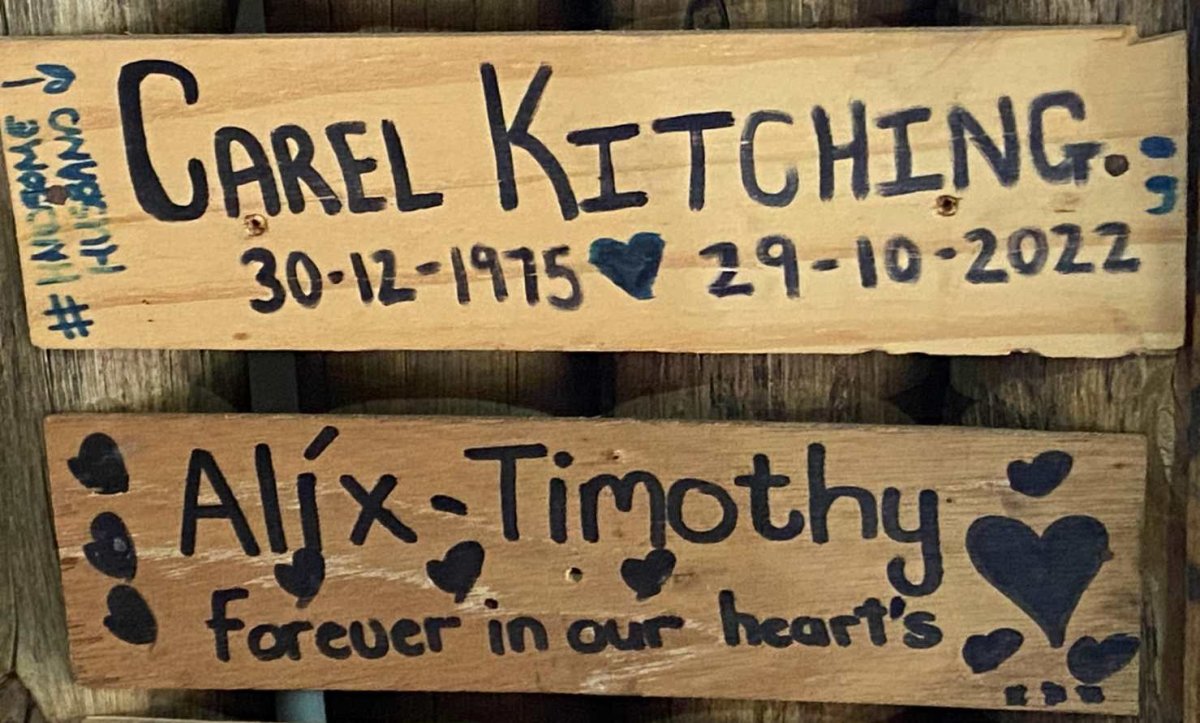 #HANDSOME
HUSBAND
CAREL KITCHING.
30-12-1975 29-10-2022
Aljx-Timothy
forever in our heart's
...